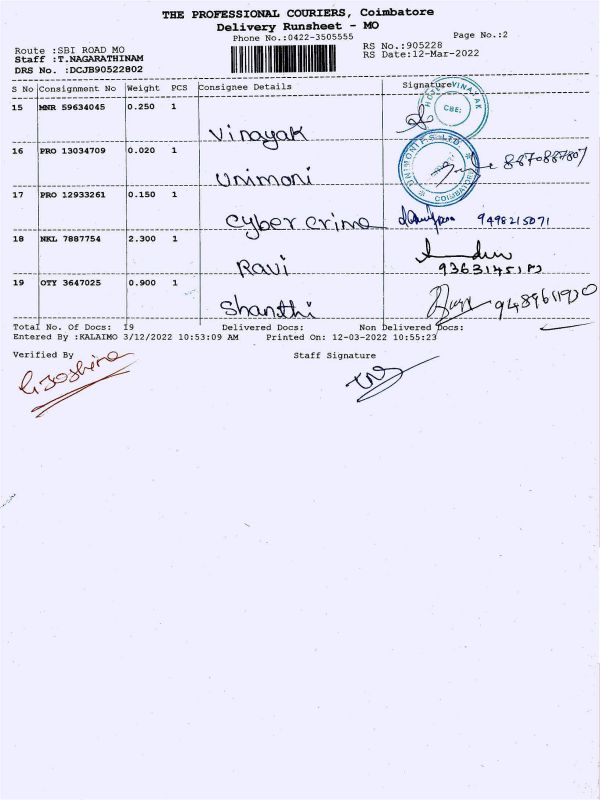 THE PROFESSIONAL COURIERS, Coimbatore
Delivery Runsheet - MO
Phone No.:0422-3505555
Page No.:2
Route :SBI ROAD MO
Staff :T.NAGARATHINAM
DRS No. :DCJB90522802
RS No.:905228
RS Date:12-Mar-2022
S No Consignment No Weight PCS Consignee Details Signature
15 MNR 59634045 0.250 1
Vinayak
HOTEL VINAYAK
CBE:
16 PRO 13034709 0.020 1
Unimoni
UNIMONI F.S. LTD
COIMBATORE
8870887807
17 PRO 12933261 0.150 1
Cyber crime
9498215071
18 NKL 7887754 2.300 1
Ravi
19 OTY 3647025 0.900 1
Shanthi
Total No. Of Docs: 19 Delivered Docs: Non Delivered Docs:
Entered By :KALAIMO 3/12/2022 10:53:09 AM Printed On: 12-03-2022 10:55:23
Verified By Staff Signature